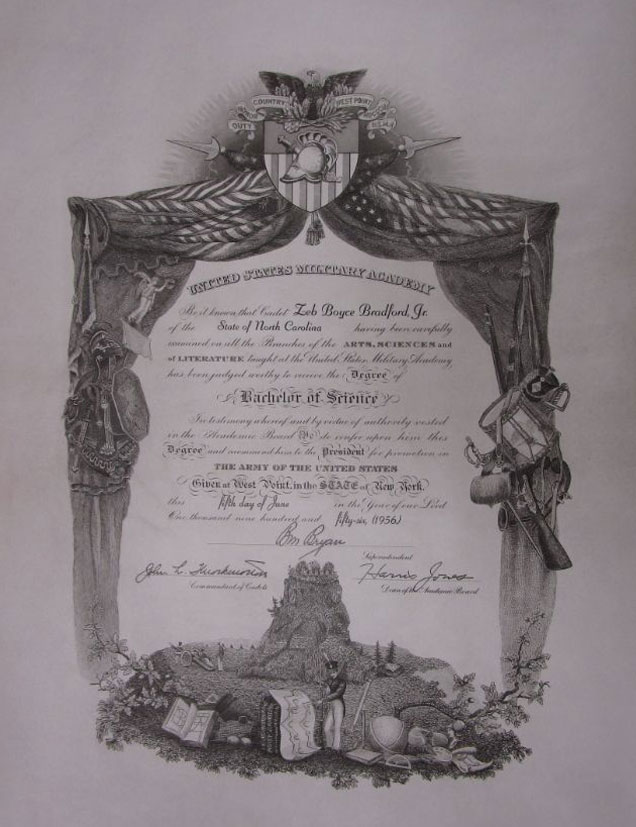 DUTY COUNTRY WEST POINT U.S.M.A.
UNITED STATES MILITARY ACADEMY
Be it known that Cadet Zeb Boyce Bradford, Jr.
of the State of North Carolina having been carefully
examined on all the Branches of the ARTS, SCIENCES and
of LITERATURE taught at the United States Military Academy
has been judged worthy to receive the Degree of
Bachelor of Science
In testimony whereof and by virtue of authority vested
in the Academic Board We do confer upon him this
Degree and recommend him to the President for promotion in
THE ARMY OF THE UNITED STATES
Given at West Point, in the STATE of New York.
this fifth day of June in the Year of our Lord
One thousand nine hundred and fifty-six, (1956)
BM Bryan
Superintendent
John L. Throckmorton Harris Jones
Commandant of Cadets Dean of the Academic Board